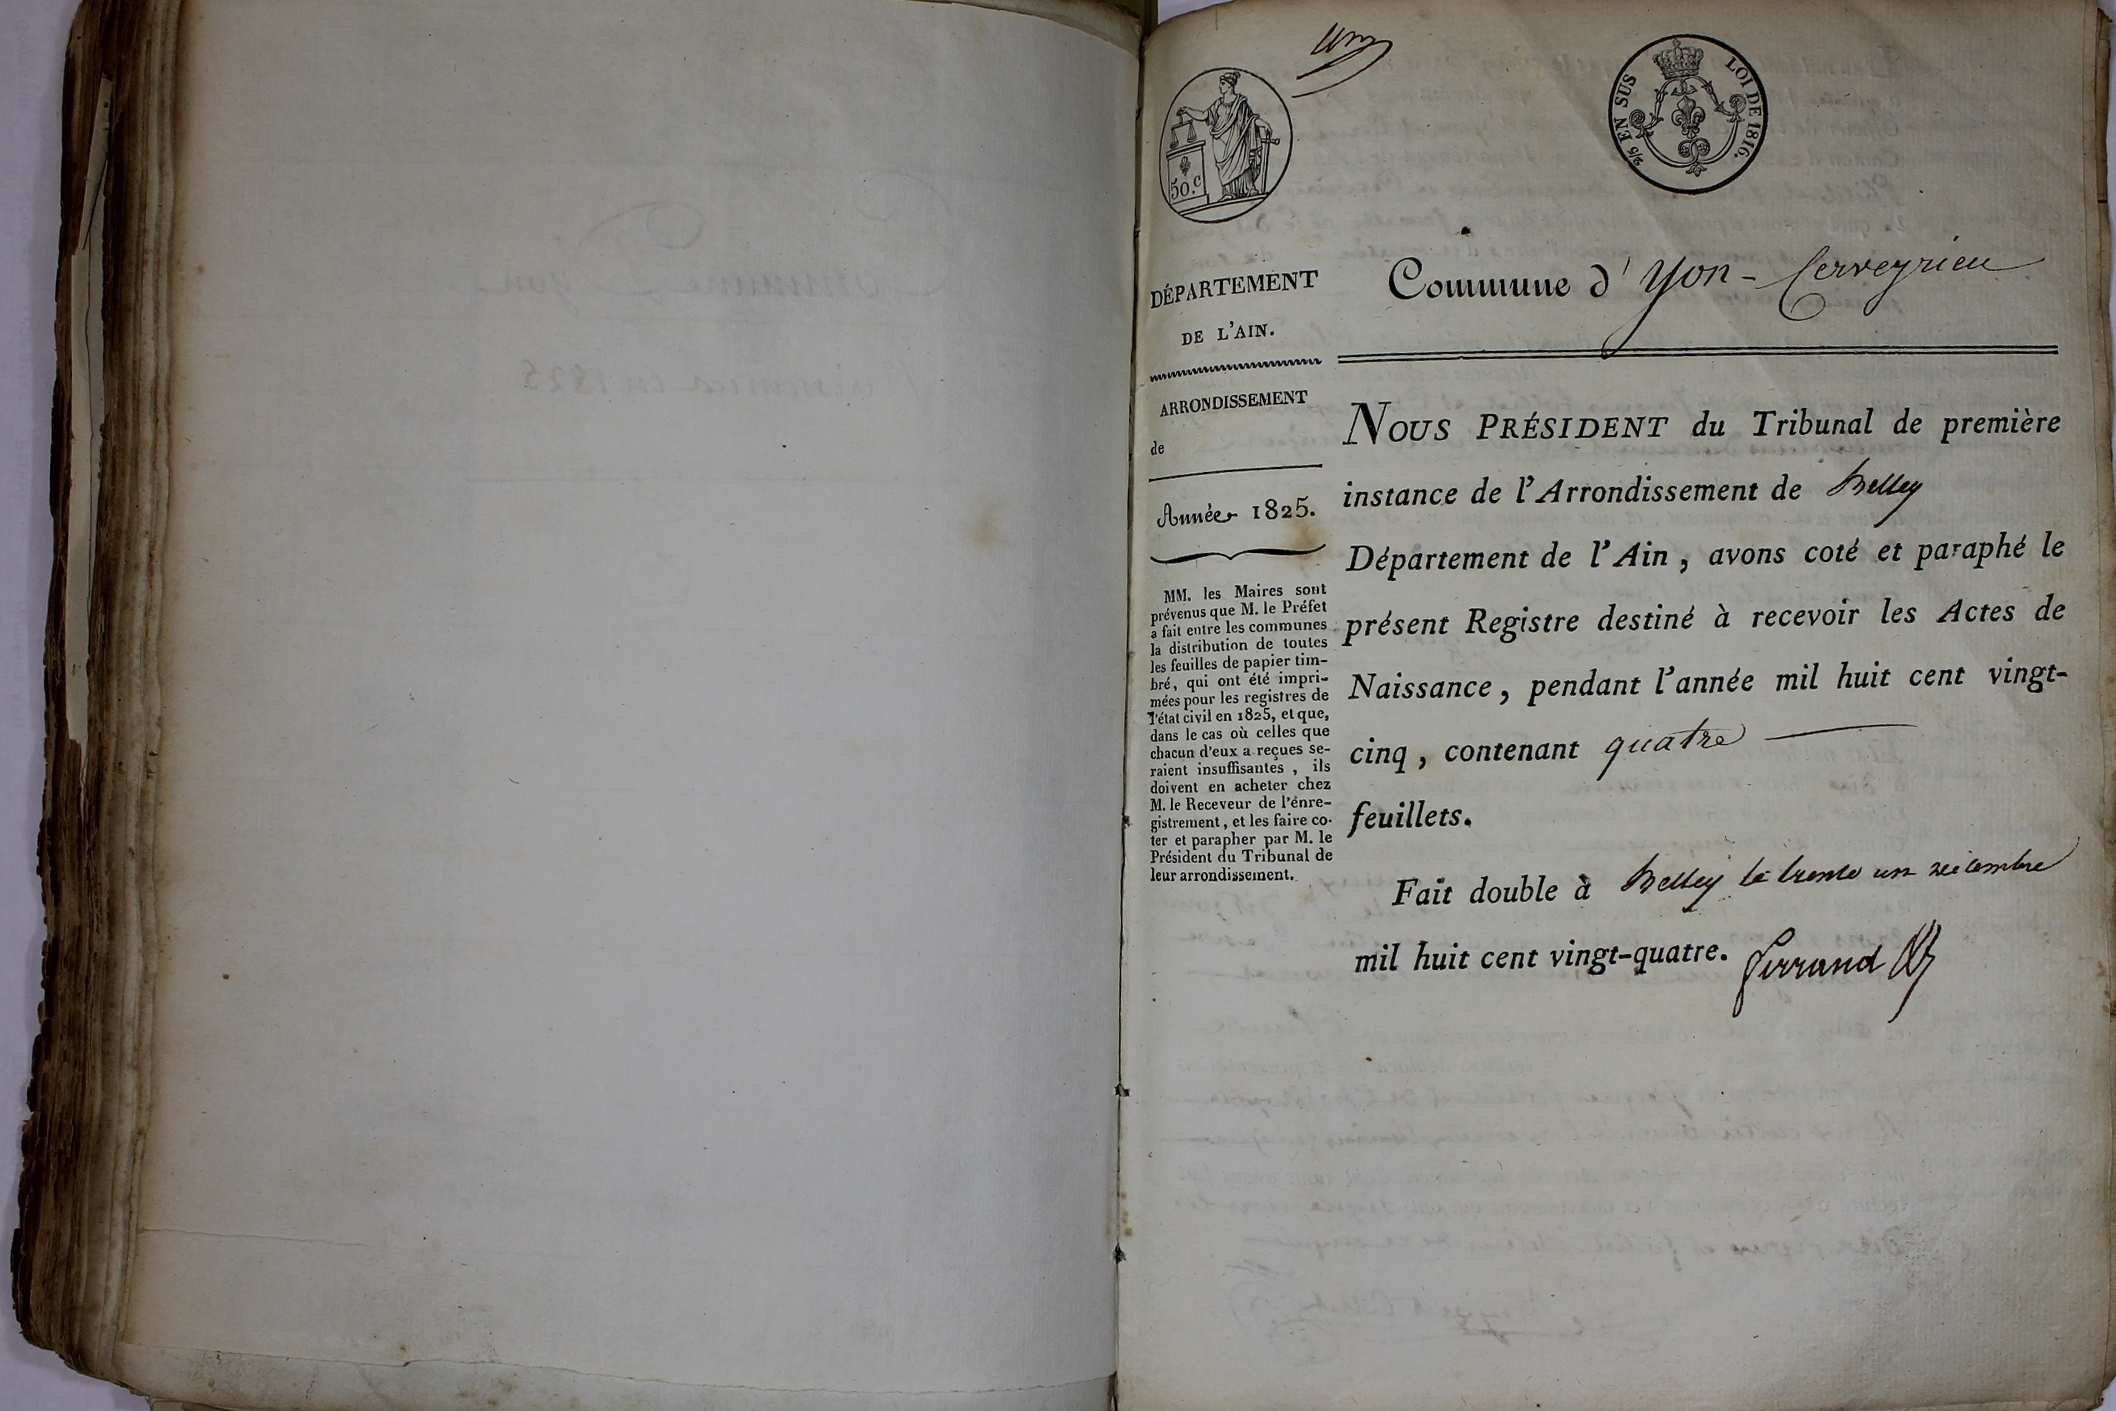 un
50.c
5/6 EN SUS
LOI DE 1816.
DÉPARTEMENT
DE L'AIN.
ARRONDISSEMENT
de
Année 1825.
MM. les Maires sont
prévenus que M. le Préfet
a fait entre les communes
la distribution de toutes
les feuilles de papier tim-
bré, qui ont été impri-
mées pour les registres de
l'état civil en 1825, et que,
dans le cas où celles que
chacun d'eux a reçues se-
raient insuffisantes, ils
doivent en acheter chez
M. le Receveur de l'énre-
gistrement, et les faire co-
ter et parapher par M. le
Président du Tribunal de
leur arrondissement.
Commune d' Yon-Cerveyrieu
NOUS PRÉSIDENT du Tribunal de première
instance de l'Arrondissement de Belley
Département de l'Ain, avons coté et paraphé le
présent Registre destiné à recevoir les Actes de
Naissance, pendant l'année mil huit cent vingt-
cinq, contenant quatre
feuillets.
Fait double à Belley le trente un décembre
mil huit cent vingt-quatre.
Ferrand